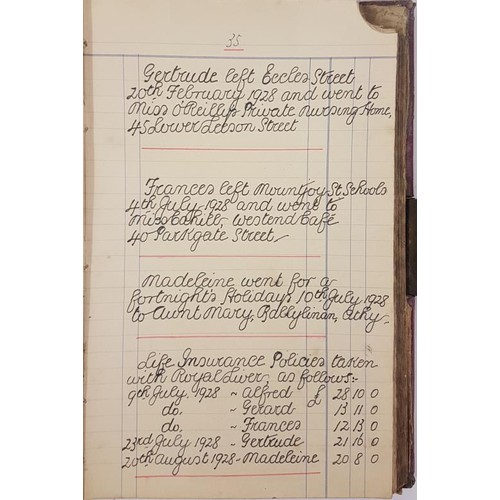 35
Gertrude left Eccles Street
20th February 1928 and went to
Miss O'Reilly's Private Nursing Home,
45 Lower Leeson Street
Frances left Mountjoy St Schools
4th July, 1928 and went to
Miss Westend Café
40 Parkgate Street
Madeleine went for a
fortnight's Holidays 10th July 1928
to Aunt Mary, Ballylinan, Athy
Life Insurance Policies taken
with Royal Liver, as follows:-
9th July, 1928 " Alfred £ 28 10 0
do. " Gerard 13 11 0
do. " Frances 12 13 0
23rd July 1928 " Gertrude 21 16 0
20th August 1928 - Madeleine 20 8 0